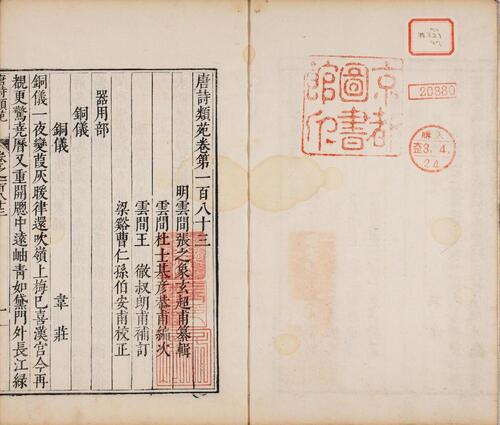 20880
購入
3.4.
24
京都
圖書
館印
唐詩類苑卷第一百八十三
明雲間張之象玄超甫纂輯
雲間杜士基彥恭甫編次
雲間王 徹叔朗甫補訂
梁谿曹仁孫伯安甫校正
器用部
銅儀
銅儀 韋莊
銅儀一夜變葭灰暖律還吹嶺上梅已喜漢宮今再
覩更驚堯曆又重開應中遠岫青如黛門外長江綠
唐詩類苑 卷之一百八十三 一